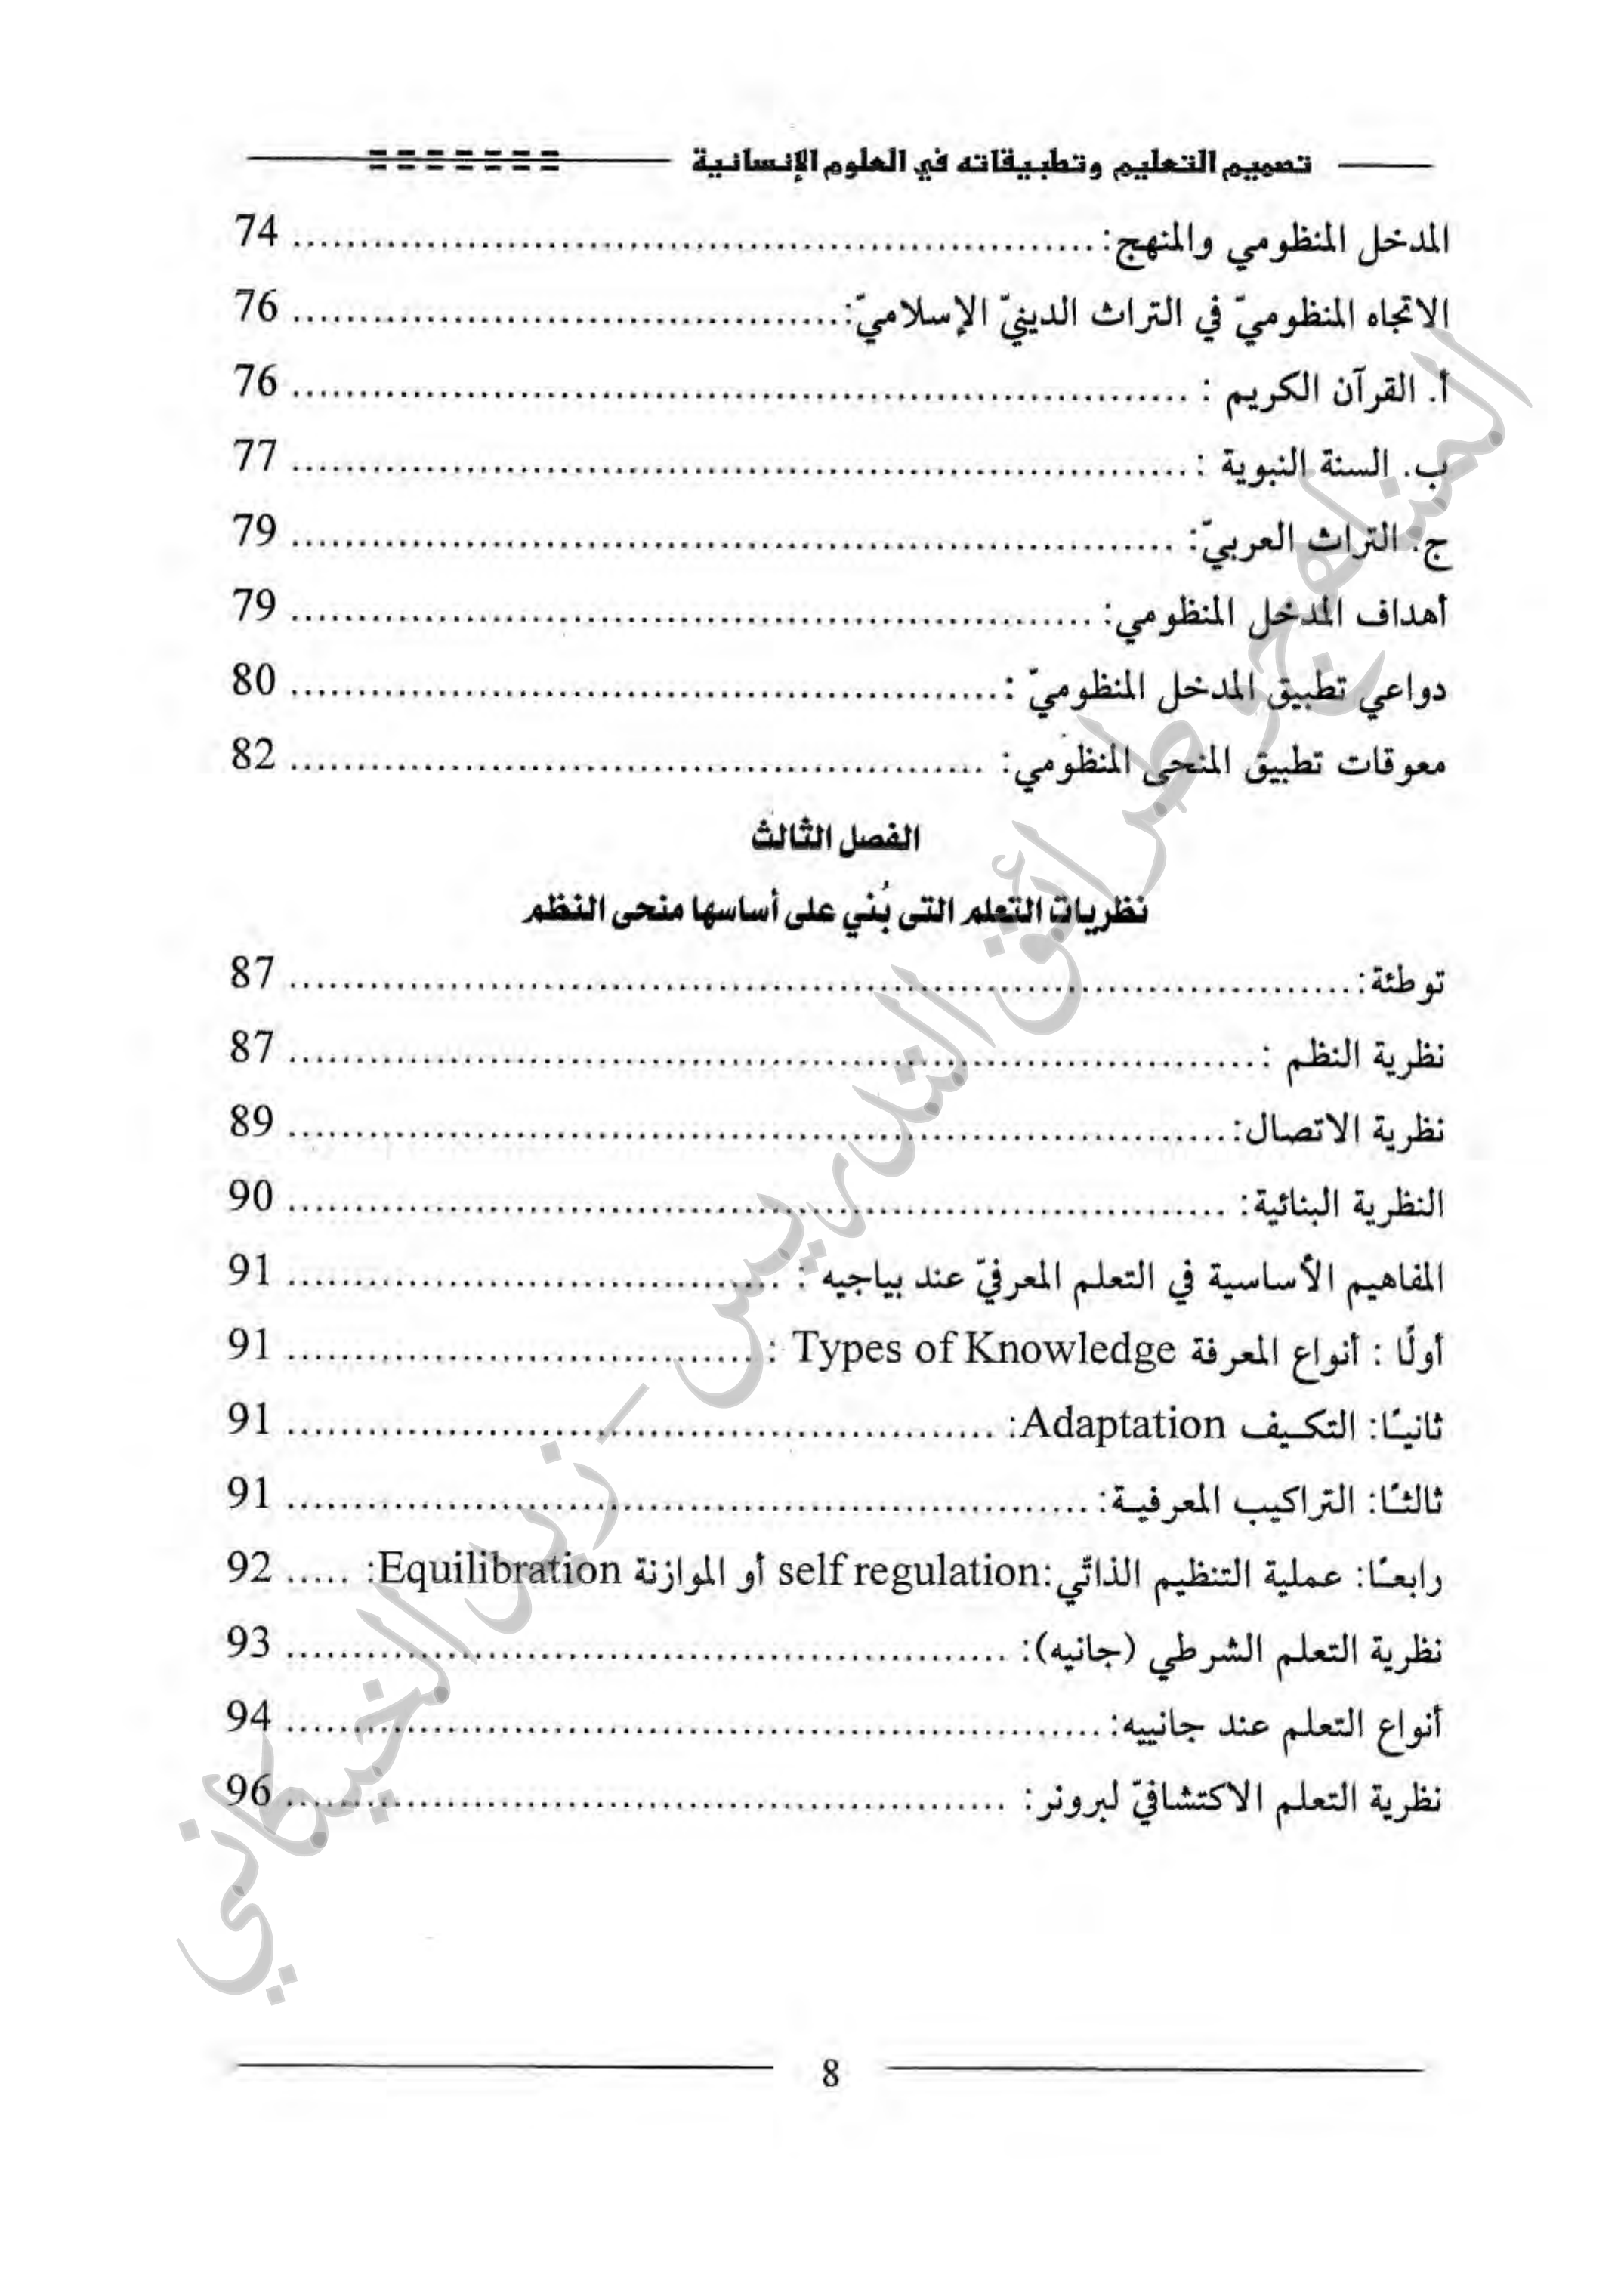 تصميم التعليم وتطبيقاته في العلوم الإنسانية
المدخل المنظومي والمنهج: 74
الاتجاه المنظوميّ في التراث الدينيّ الإسلاميّ: 76
أ. القرآن الكريم : 76
ب. السنة النبوية : 77
ج. التراث العربيّ: 79
أهداف المدخل المنظومي: 79
دواعي تطبيق المدخل المنظوميّ : 80
معوقات تطبيق المنحى المنظومي: 82
الفصل الثالث
نظريات التعلم التى بُني على أساسها منحى النظم
توطئة: 87
نظرية النظم : 87
نظرية الاتصال: 89
النظرية البنائية: 90
المفاهيم الأساسية في التعلم المعرفيّ عند بياجيه : 91
أولًا : أنواع المعرفة Types of Knowledge : 91
ثانيـًا: التكـيف Adaptation: 91
ثالثـًا: التراكيب المعرفيـة: 91
رابعـًا: عملية التنظيم الذاتّي:self regulation أو الموازنة Equilibration: 92
نظرية التعلم الشرطي (جانيه): 93
أنواع التعلم عند جانييه: 94
نظرية التعلم الاكتشافيّ لبرونر: 96
المناهج وطرائق التدريس - زيد الخيكاني
8